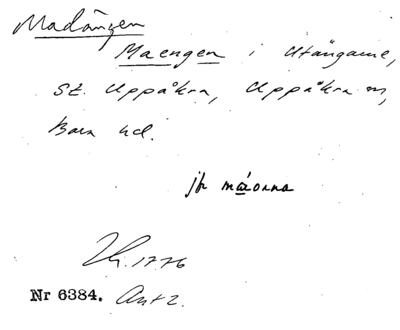 Madängen
Maengen i Utängarne,
St. Uppåkra, Uppåkra sn,
Bara hd.
jfr máonna
1776
Nr 6384. Ant 2.